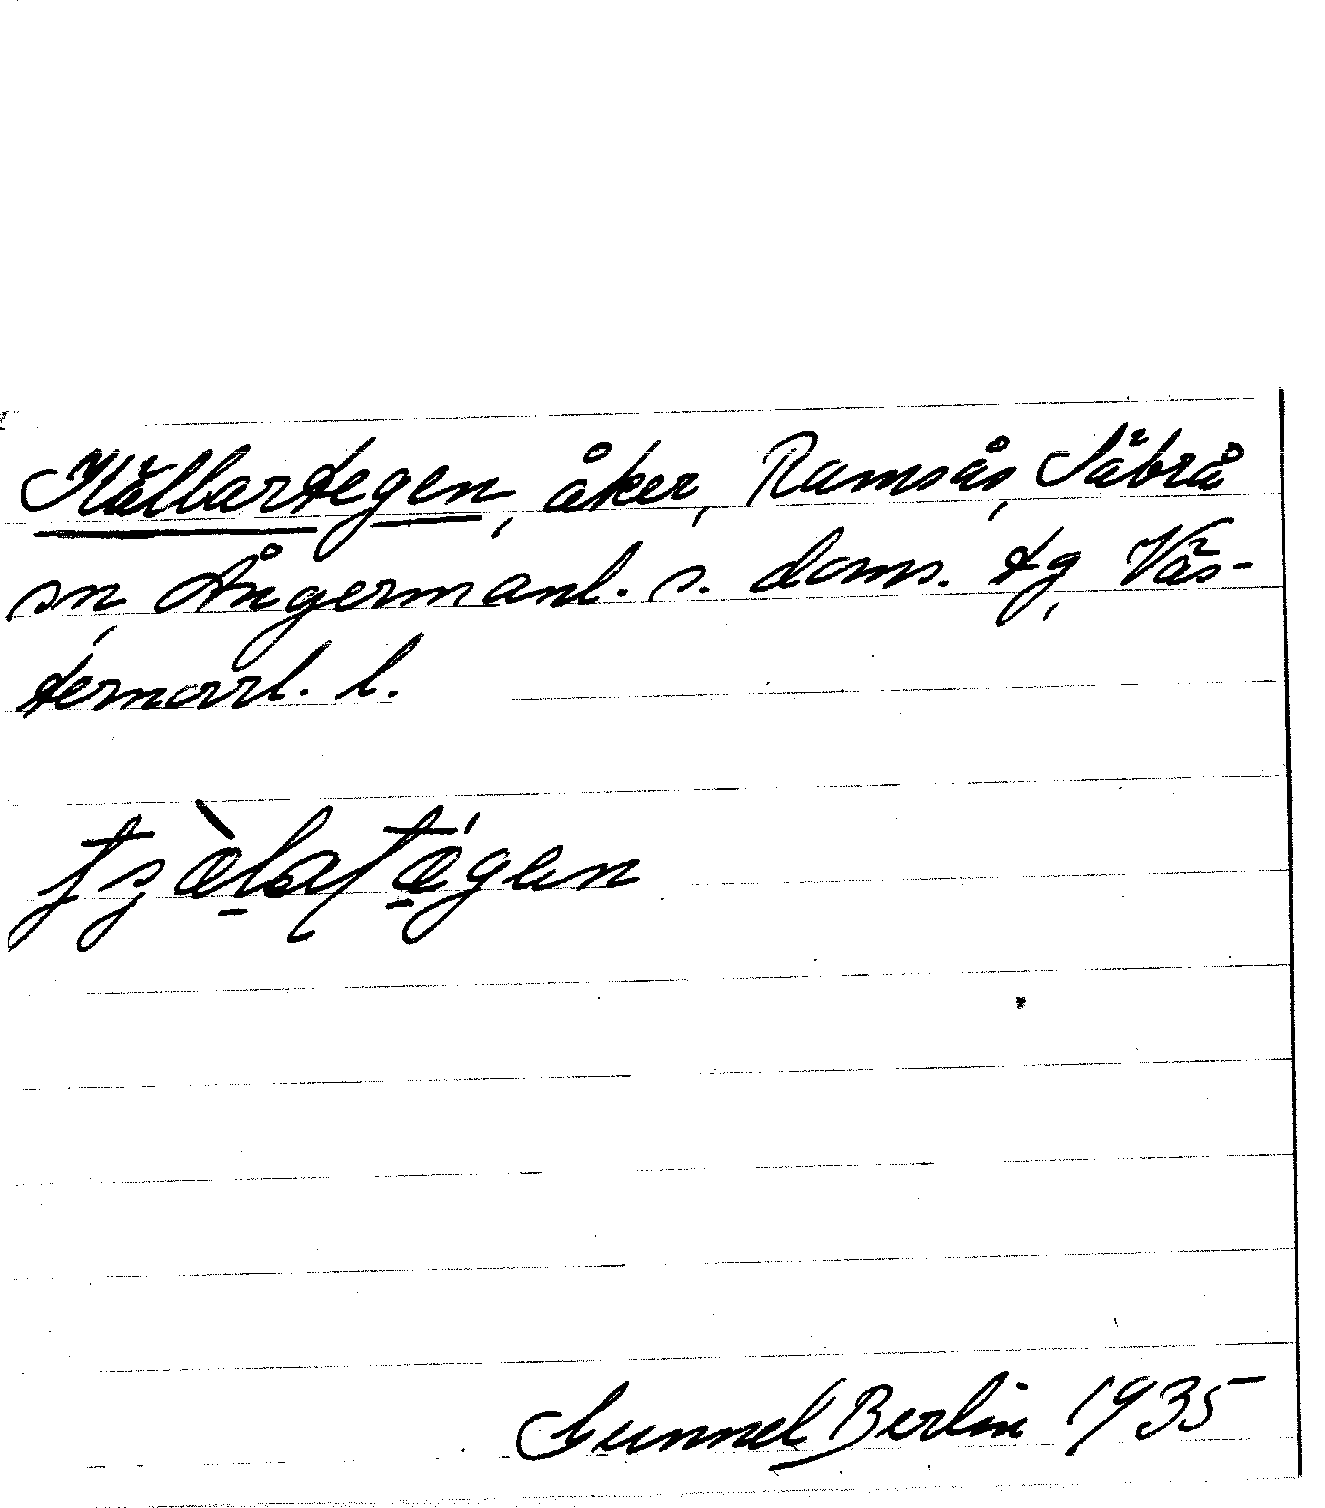 Källartegen, åker, Ramsås, Säbrå
sn, Ångermanl. s. doms. tg, Väs-
ternorrl. l.
Gunnel Berlin 1935